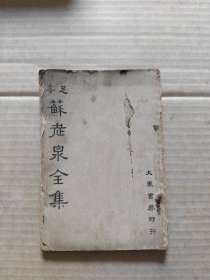 足本
蘇老泉全集
大東書局印行